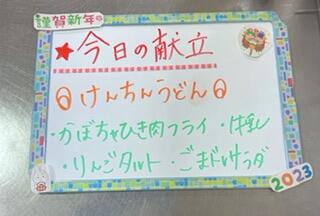 謹賀新年
★今日の献立
けんちんうどん
・かぼちゃひき肉フライ・牛乳
・りんごタルト・ごまドレサラダ
2023